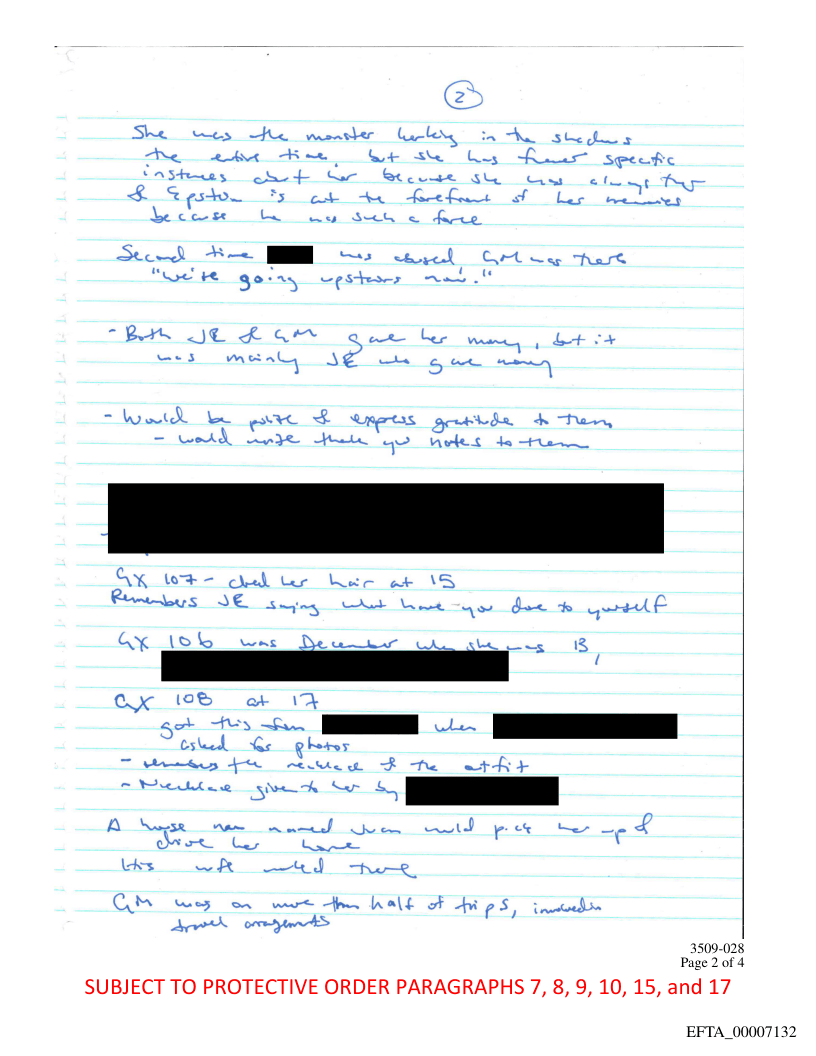 2
She was the monster lurking in the shadows
the entire time, but she has fewer specific
instances abt her because she was always there
& Epstein is at the forefront of her memories
because he was such a force
Second time was abused GM was there
"We're going upstairs now."
- Both JE & GM gave her money, but it
was mainly JE who gave money
- Would be polite & express gratitude to them
- would write thank you notes to them
GX 107 - cut her hair at 15
Remembers JE saying what have you done to yourself
GX 106 was December when she was 13,
GX 108 at 17
got this from when
asked for photos
- remembers the necklace & the outfit
- Necklace given to her by
A house man named Juan would pick her up &
drive her home
His wife worked there
GM was on more than half of trips, involved in
travel arragements
3509-028
Page 2 of 4
SUBJECT TO PROTECTIVE ORDER PARAGRAPHS 7, 8, 9, 10, 15, and 17
EFTA_00007132